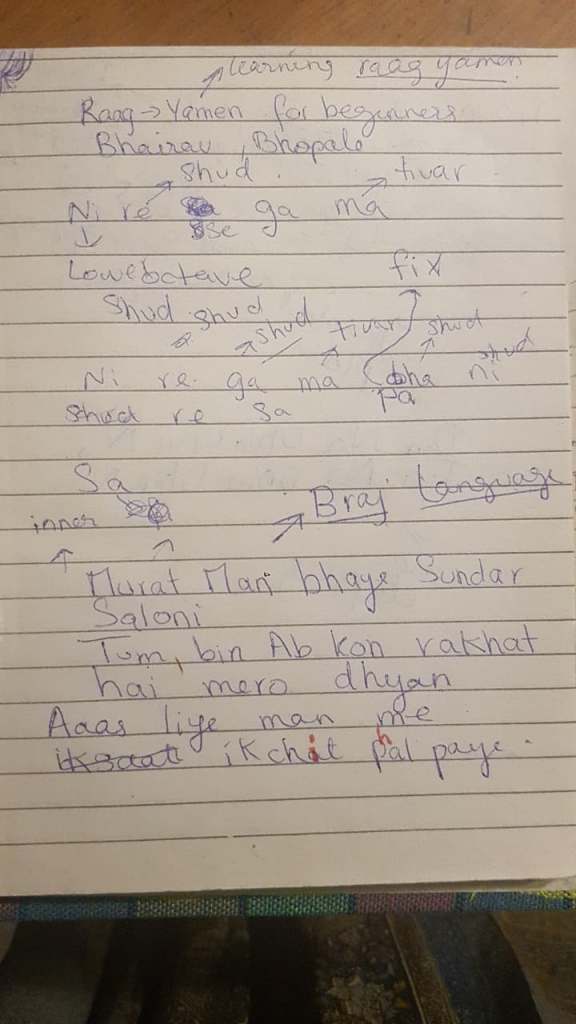 learning raag yamen
Raag → Yamen for beginners
Bhairav, Bhopale
shud tivar
Ni re ga ma
se
Low octave fix
Shud shud shud tivar shud shud
Ni re ga ma dha ni
pa
Shud re sa
Sa
inner
Braj Language
Murat Man bhaye Sundar
Saloni
Tum, bin Ab kon rakhat
hai mero dhyan
Aaas liye man me
ikchit phal paye.